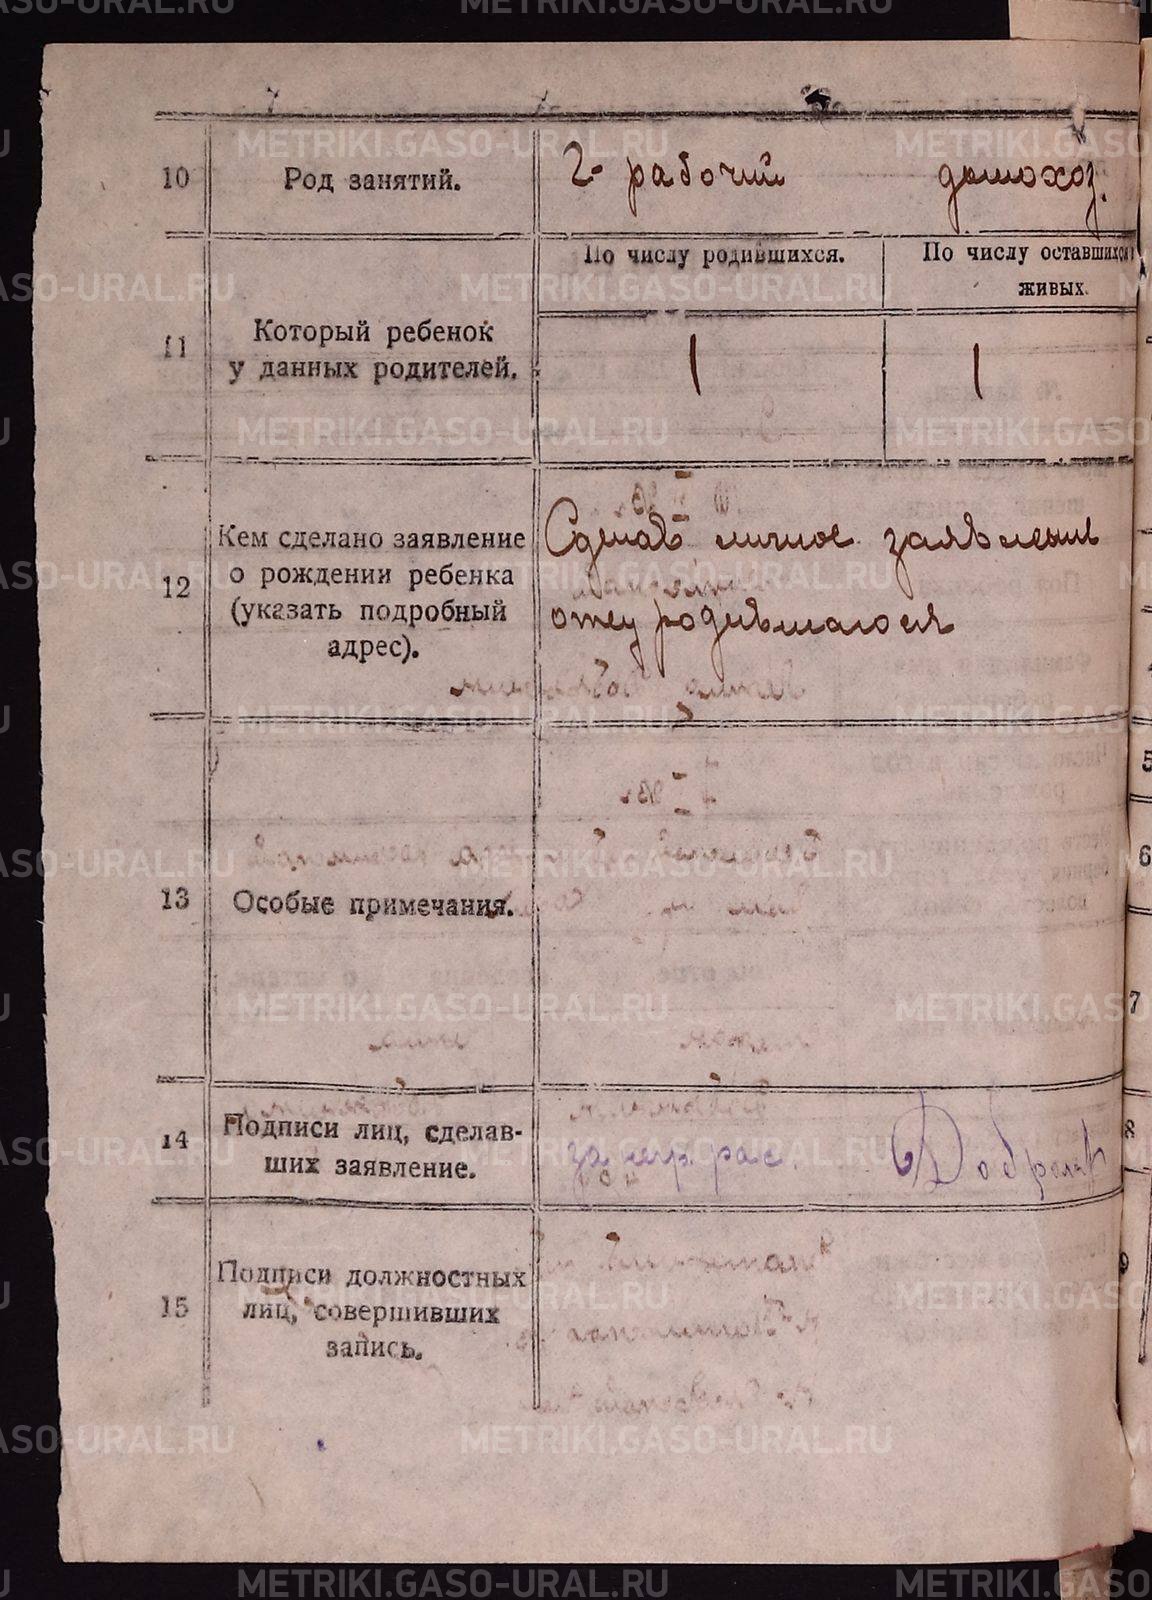 10 Род занятий. 2- рабочий домохоз.
По числу родившихся. По числу оставшихся живых.
11 Который ребенок
у данных родителей. 1 1
Кем сделано заявление Сделав личное заявление
12 о рождении ребенка
(указать подробный отец родившагося
адрес).
13 Особые примечания.
14 Подписи лиц, сделав-
ших заявление. за
15 Подписи должностных
лиц, совершивших
запись.
5
6
7
8
9
METRIKI.GASO-URAL.RU